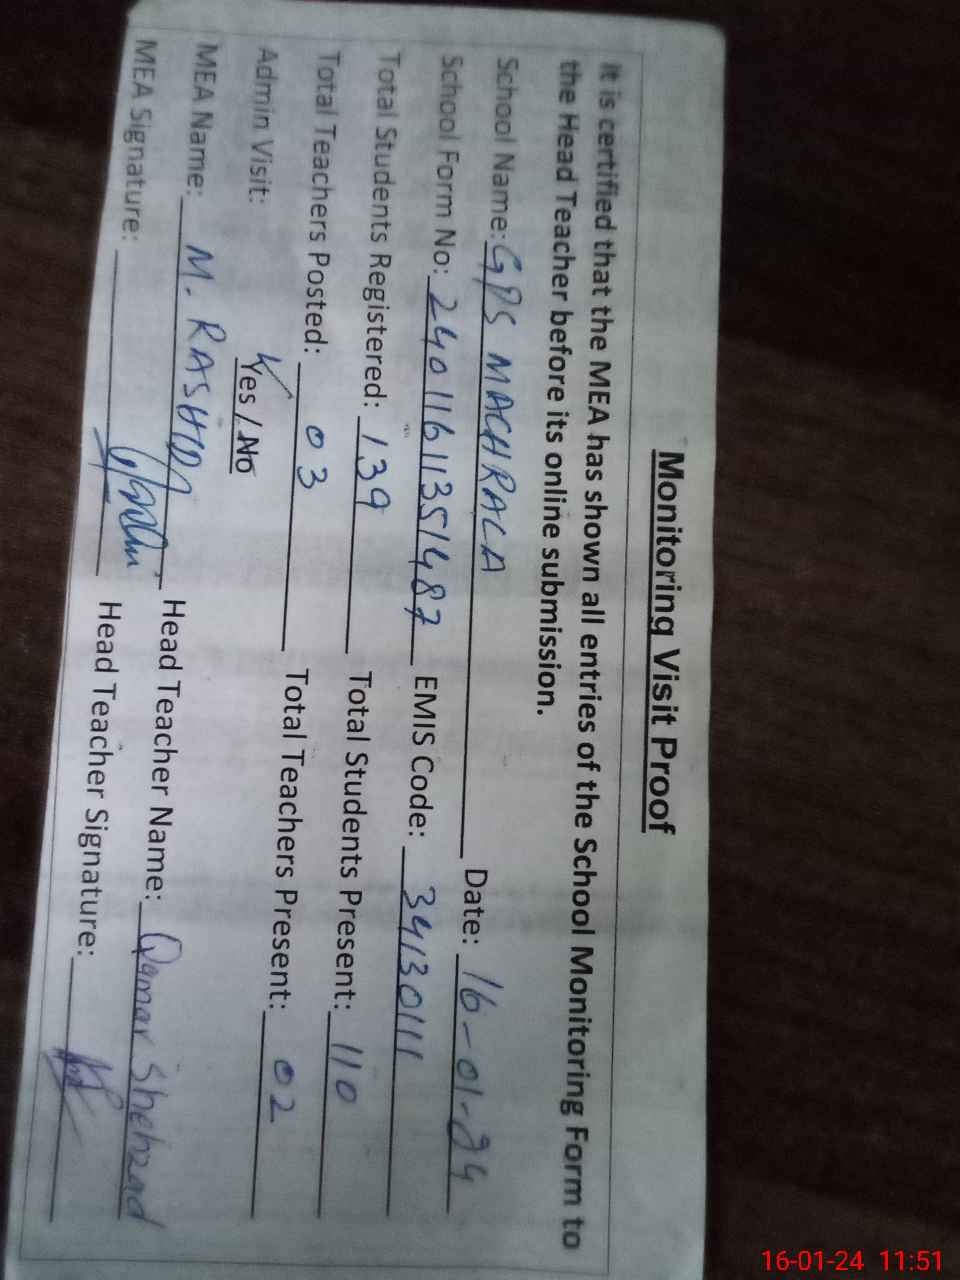 Monitoring Visit Proof
It is certified that the MEA has shown all entries of the School Monitoring Form to
the Head Teacher before its online submission.
School Name: GPS MACHRALA Date: 16-01-24
School Form No: 24011611351487 EMIS Code: 34130111
Total Students Registered: 139 Total Students Present: 110
Total Teachers Posted: 03 Total Teachers Present: 02
Admin Visit: Yes / No
MEA Name: M. RASHID Head Teacher Name: Qamar Shehzad
MEA Signature: Head Teacher Signature:
16-01-24 11:51